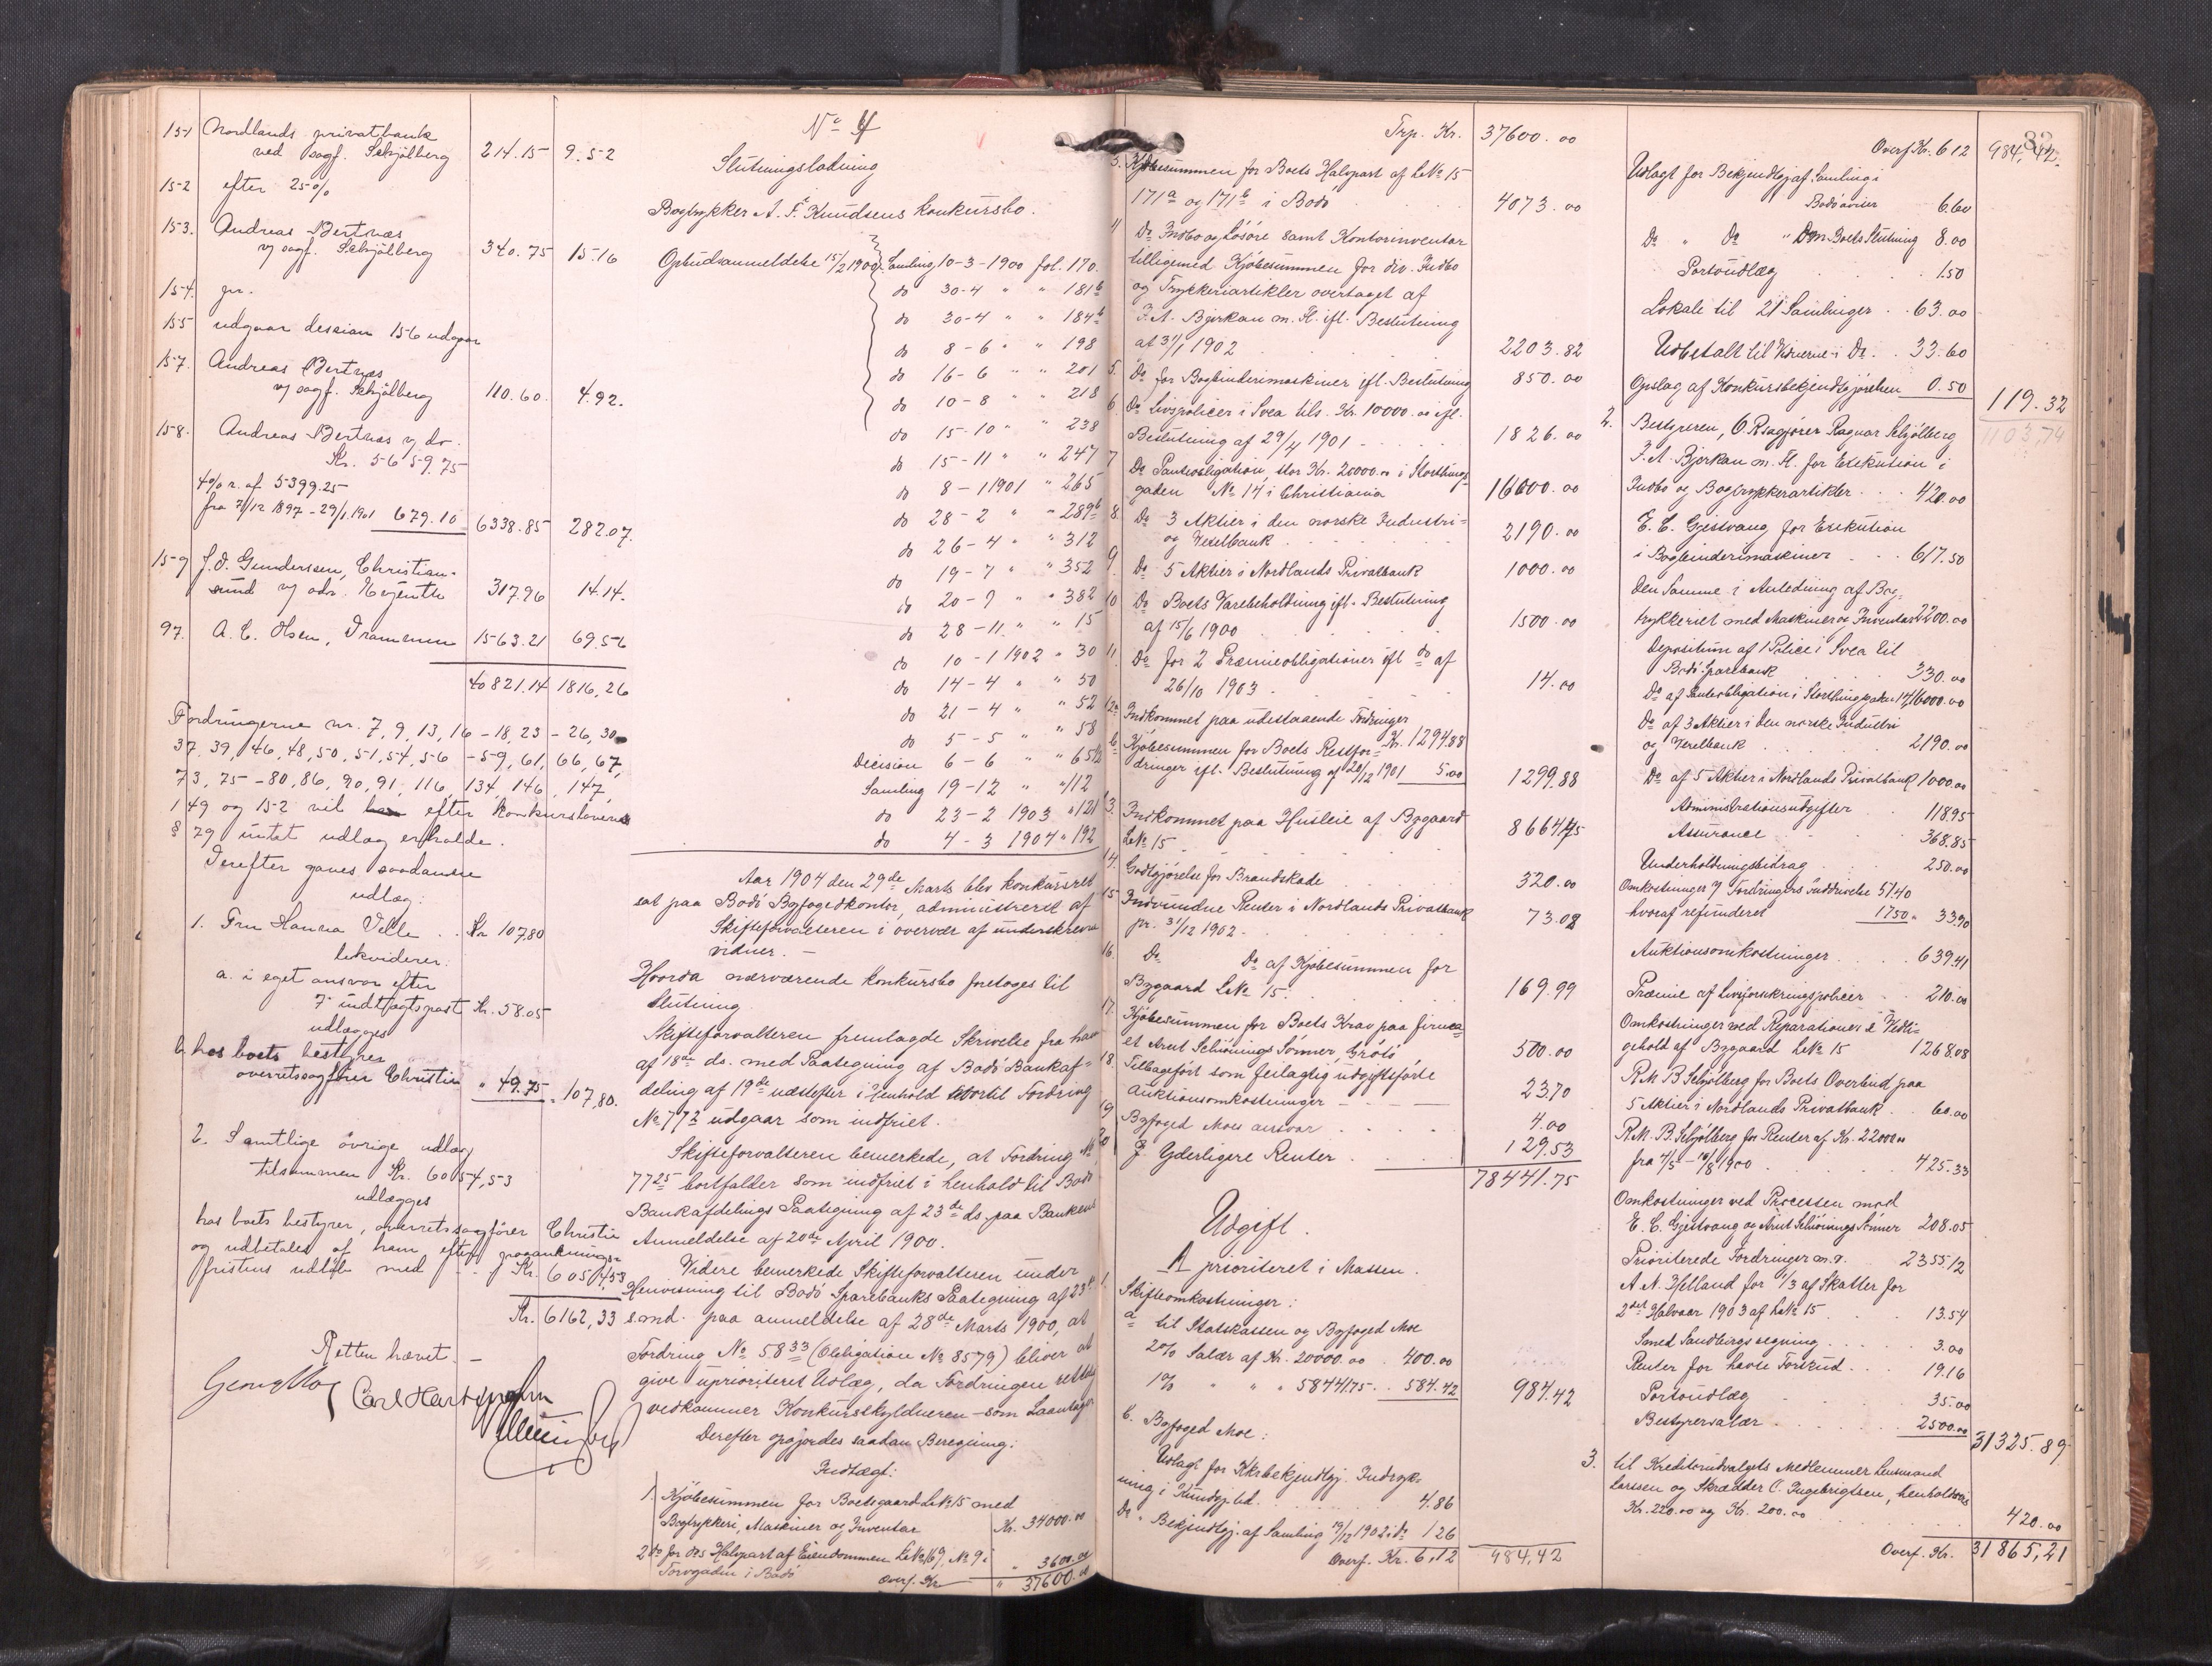 151 Nordlands privatbank
ved sagf. Schjölberg 214.15 9.52
152 efter 25%
153. Andreas Bertnæs
v/ sagf. Schjölberg 340.75 15.16
154. gr.
155 udgaar desaian 156 udgaar
157. Andreas Bertnæs
v/ sagf. Schjölberg 110.60. 4.92.
158. Andreas Bertnæs v/ do.
Kr. 5659.75
4% r. af 5399.25
fra 7/12 1897 - 29/1 1901 679.10 6338.85 282.07.
159 J. O. Gunderssen, Christian-
sund v/ adv. 317.96 14.14.
97. A. C. Olsen, Drammen 1563.21 69.56
40821.14 1816,26
Fordringerne nr. 7, 9, 13, 16 - 18, 23 - 26, 30
37. 39, 46, 48, 50, 51, 54, 56 - 59, 61, 66, 67,
73, 75 - 80, 86, 90, 91, 116, 134, 146, 147,
149 og 152 vil efter Konkurslovens
§ 79 intet udlæg erholde.
Derefter gaves saadanne
udlæg:
1. Fru Hanna Velle . . Kr 107,80
likviderer:
a. i eget ansvar efter
7. indtægtspost Kr. 58.05
udlægges
b. hos boets bestyrer
overretssagfører Christie " 49.75 = 107,80.
2. Samtlige övrige udlæg
tilsammen Kr. 6054,53
udlægges
hos boets bestyrer, overretssagförer Christie
og udbetales af ham efter paaanknings-
fristens udlöb med . . Kr. 6054,53
Kr. 6162,33
Retten hævet. —
Georg Moe
Carl Hartvigsen

No 4
Slutningsladning
Bogtrykker A. F. Knudsens konkursbo.
Opbudsanmeldelse 15/2 1900. Samling 10-3-1900 fol. 170.
do 30-4 " " 181b
do 30-4 " " 184b
do 8-6 " " 198
do 16-6 " " 201
do 10-8 " " 218
do 15-10 " " 238
do 15-11 " " 247
do 8-1 1901 " 265
do 28-2 " " 289b
do 26-4 " " 312
do 19-7 " " 352
do 20-9 " " 382
do 28-11 " " 15
do 10-1 1902 " 30
do 14-4 " " 50
do 21-4 " " 52
do 5-5 " " 58
Decision 6-6 " " 65b
Samling 19-12 " " 112
do 23-2 1903 " 121
do 4-3 1904 " 192
Aar 1904 den 29de Marts blev konkursret
sat paa Bodö Byfogedkontor, administreret af
Skifteforvalteren i overvær af underskrevne
vidner. —
Hvorda nærværende konkursbo foretoges til
Slutning.
Skifteforvalteren fremlagde Skrivelse fra ham
af 18de ds. med Paategning af Bodö Bankaf-
deling af 19de næstefter i Henhold hvortil Fordring
No 772 udgaar som indfriet.
Skifteforvalteren bemerkede, at Fordring No
7725 bortfalder som indfriet i henhold til Bodö
Bankafdelings Paategning af 23de ds. paa Bankens
Anmeldelse af 20de April 1900.
Videre bemerkede Skifteforvalteren under
Henvisning til Bodö Sparebanks Paategning af 23de
s.md. paa anmeldelse af 28de Marts 1900, at
Fordring No 5833 (Obligation No 8579) bliver at
give uprioriteret Udlæg, da Fordringen rettelig
vedkommer Konkursskyldneren som Laantager
Derefter opgjordes saadan Beregning:
Indtægt:
1. Kjöbesummen for Boetsgaard LNo 15 med
Bogtrykkeri, Maskiner og Inventar Kr. 34000.00
2. do for dets Halvpart af Eiendommen LNo 169, No 9 i
Torvgaden i Bodö " 3600.00
Overf. Kr. " 37600.00

Trp. Kr. 37600.00
3. Kjöbesummen for Boets Halvpart af LNo 15
171a og 171b i Bodö 4073.00
4 Do Indbo og Lösöre samt Kontorinventar
tilligemed Kjöbesummen for div. Indbo
og Trykkeriartikler overtaget af
J. A. Bjerkan m. fl. ifl. Beslutning
af 31/1 1902 2203.82
5. Do for Bogbinderimaskiner ifl. Beslutning 850.00
6. Do Livspolicer i Svea tils. Kr. 10000.00 ifl.
Beslutning af 29/4 1901 - 1826.00
7 Do Panteobligation, stor Kr. 20000.00 i Storthings-
gaden No 14 i Christiania 16000.00
8. Do 3 Aktier i den norske Industri-
og Vexelbank 2190.00
9. Do 5 Aktier i Nordlands Privatbank 1000.00
10 Do Boets Varebeholdning ifl. Beslutning
af 15/6 1900 1500.00
11. Do for 2 Præmieobligationer ifl do af
26/10 1903 . 14.00
12a Indkommet paa udestaaende Fordringer Kr. 1294.88
b. Kjöbesummen for Boets Restfor-
dringer ifl. Beslutning af 20/12 1901 5.00 1299.88
13. Indkommet paa Husleie af Bygaard
LNo 15 8664.75
14. Godtgjörelse for Brandskade 320.00
15 Indvundne Renter i Nordlands Privatbank
pr. 31/12 1902 73.08
16. Do Do af Kjöbesummen for
Bygaard LNo 15. 169.99
17. Kjöbesummen for Boets Krav paa firma-
et Arnt Schiönings Sönner, Grötö 500.00
18. Tilbageført som feilagtig udgiftsförte
Auktionsomkostninger - 23.70
19 Byfoged Moes ansvar 4.00
20 Yderligere Renter 129.53
78441.75
Udgift.
A prioriteret i Massen.
1. Skifteomkostninger:
a til Statskassen og Byfoged Moe
2% Salær af Kr. 20000.00 . 400.00
1% " " " 58441.75 . . 584.42 984.42
b. Byfoged Moe:
Udlagt for Kkrbekjendtgj. Indryk-
ning i Kundgj.tid. 4.86
Do " Bekjendtgj. af Samling 19/12 1902 i do 1.26
Overf. Kr. 6,12 984,42

82.
Overf. Kr. 6.12 984,42.
Udlagt for Bekjendtgj. af Samling i
Bodö aviser 6.60
Do " Do " Om Boets Slutning 8.00
Portoudlæg 1.50
Lokale til 21 Samlinger . . 63.00
Udbetalt til Vidnerne i Do . 33.60
Opslag af Konkursbekjendtgjörelsen 0.50 119.32
1103,74
2. Bestyreren, O.R.sagförer Ragnar Schjölberg
J. A. Bjerkan m. fl. for Exekution i
Indbo og Bogtrykkerartikler . . . 420.00
E. C. Gjestvang for Exekution
i Bogbinderimaskiner . . . 617.50
Den Samme i Anledning af Bog-
trykkeriet med Maskiner og Inventar 2200.00
Depositum af 1 Police i Svea til
Bodö Sparebank 330.00
Do af Panteobligation i Storthingsgaden 14 16000.00
Do af 3 Aktier i den norske Industri
og Vexelbank 2190.00
Do af 5 Aktier i Nordlands Privatbank 1000.00
Administrationsudgifter 118.95
Assurance 368.85
Underholdningsbidrag 250.00
Omkostninger v/ Fordringers inddrivelse 51.40
hvoraf refunderet 17.50 " 33.90
Auktionsomkostninger 639.41
Præmie af Livsforsikringspolicer . . 210.00
Omkostninger ved Reparation & Vedli-
gehold af Bygaard LNo 15 1268.08
R. M. B. Schjölberg for Boets Overbud paa
5 Aktier i Nordlands Privatbank . . 60.00
R. M. B. Schjölberg for Renter af Kr. 22000.00
fra 4/5 - 10/8 1900 425.33
Omkostninger ved Processen mod
E. C. Gjestvang og Arnt Schiönings Sönner 208.05
Prioriterede Fordringer m. v. 2355.12
A. N. Helland for 1/3 af Skatter for
2det Halvaar 1903 af LNo 15 13.54
Smed Sandbergs regning 3.00
Renter for havte Forskud 19.16
Portoudlæg 35.00
Bestyrersalær 2500.00 31325.89
3. til Kreditorudvalgets Medlemmer Lensmand
Larssen og Skrædder C. Ingebrigtsen, henholdsvis
Kr. 220.00 og Kr. 200.00 420.00
Overf. Kr. 31865,21